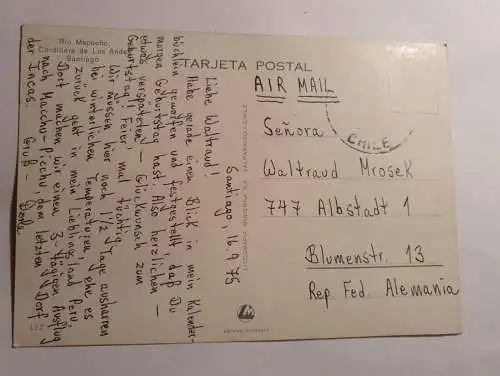 Río Mapocho
Cordillera de Los Andes
Santiago
TARJETA POSTAL
AIR MAIL
CHILE
Señora
Waltraud Mrosek
747 Albstadt 1
Blumenstr. 13
Rep. Fed. Alemania
Santiago, 16.9.75
Liebe Waltraud!
Habe gerade einen Blick in mein Kalender-
büchlein geworfen und festgestellt, daß Du
morgen Geburtstag hast. Also herzlichen –
etwas verspäteten – Glückwunsch zum
Geburtstag. Feier mal tüchtig.
Wir müssen hier noch 1 1/2 Tage ausharren
bei winterlichen Temperaturen, ehe es
zurück geht in mein Lieblingsland Peru.
Dort machen wir einen 3-tägigen Ausflug
nach Macchu-Picchu, dem letzten Dorf
der Incas.
Gruß –
112